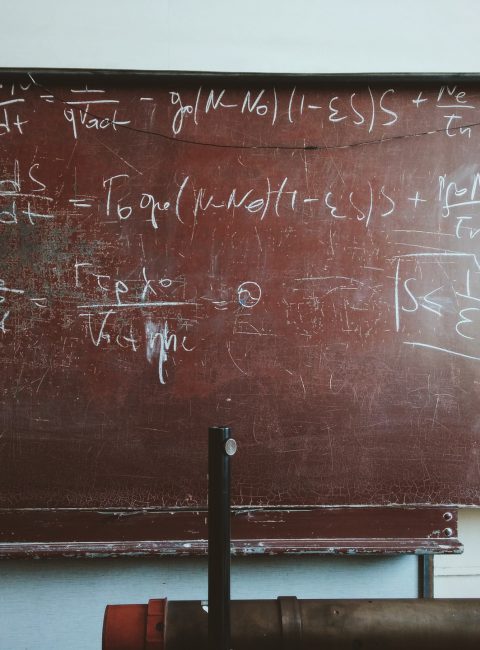 dN/dt = I/qVact - g₀(N-N₀)(1-εS)S + Ne/τn
dS/dt = Γ₀g₀(N-N₀)(1-εS)S +
= Γτpλ₀/Vact ηhc = ϑ
S ≤ 1/ε